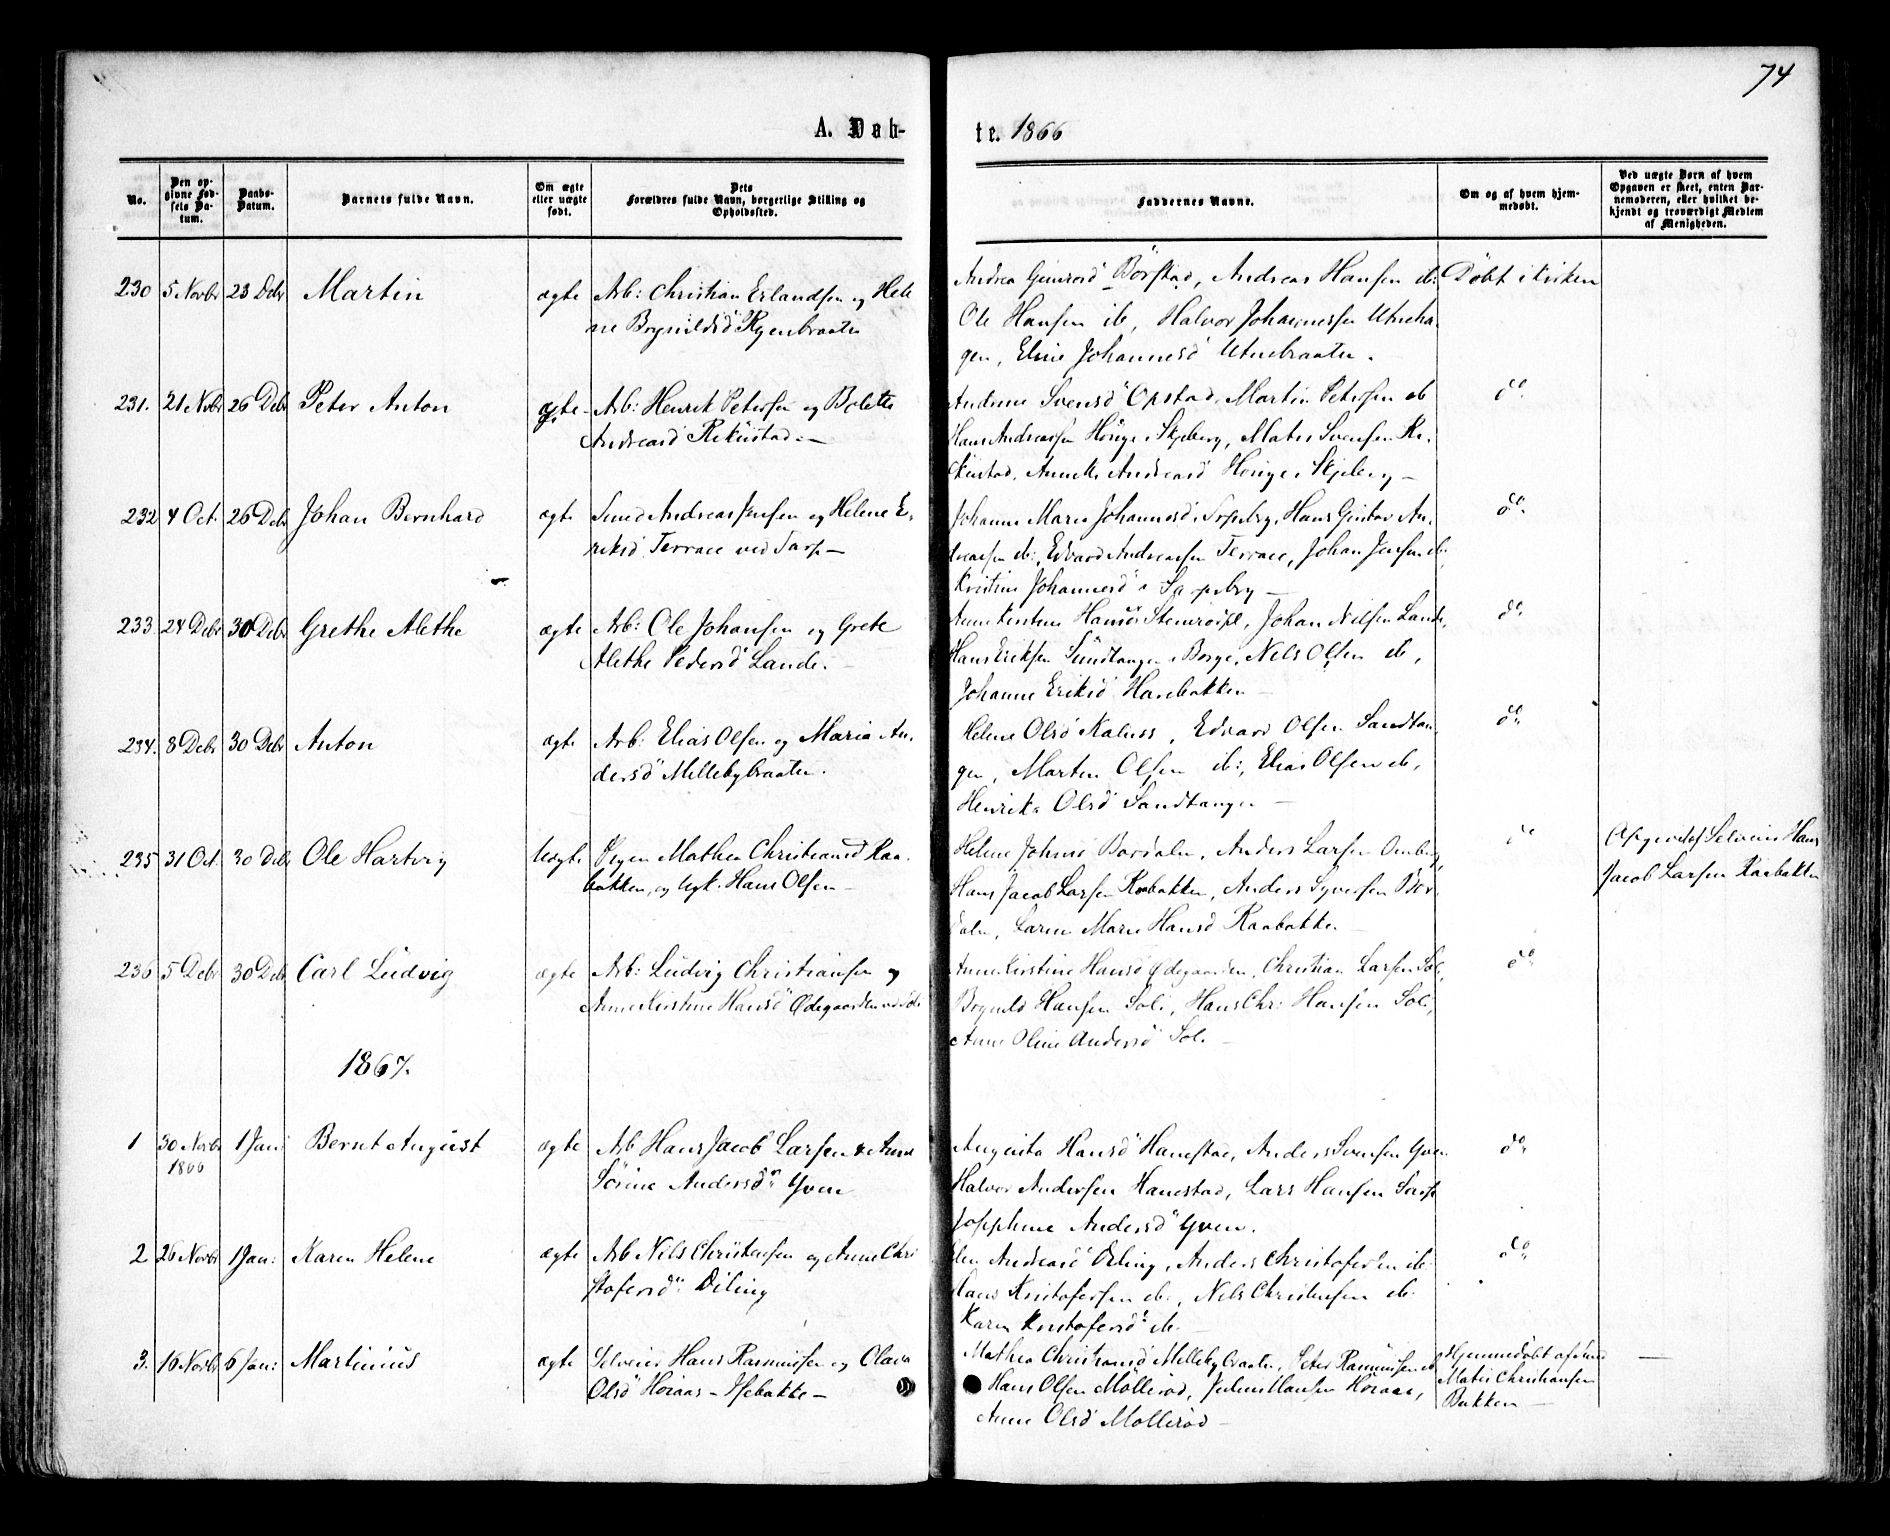 74
A. Døb-
te. 1866
No.
Den op-
givne Fød-
sels Da-
tum.
Daabs-
Datum.
Barnets fulde Navn.
Om ægte
eller uægte
født.
Dets
Forældres fulde Navn, borgerlige Stilling og
Opholdssted.
Faddernes Navne.
Om og af hvem hjem-
medøbt.
Ved uægte Børn af hvem
Opgaven er skeet, enten Bar-
nemoderen, eller hvilket be-
kjendt og troværdigt Medlem
af Menigheden.
230 5 Novbr 23 Debr Martin ægte Arb: Christian Erlandsen og Hele
ne Brynildsd Ryenbraaten
Andrea Gunersd Börstad, Andreas Hansen ib: Döbt i Kirken
Ole Hansen ib, Halvor Johannessen Utneha-
gen, Eline Johannesd Utnebraaten.
231. 21 Novbr 26 Debr Peter Anton ægte Arb: Henrik Petersen og Bolette
Andreasd Rekustad.—
Andrine Svensd Opstad, Martin Petersen ib do
Hans Andreassen Hönge i Skjeberg, Mates Svensen Re-
kustad, Annette Andreasd Hönge i Skjeberg —
232 4 Oct. 26 Debr Johan Bernhard ægte Smed Andreas Jensen og Helene E-
riksd Terrace ved Sarp —
Johanne Marie Johannesd i Sarpsbrg, Hans Gustav An- do
dreasen ib:, Edvard Andreasen Terrace, Johan Jensen ib
Kristine Johannesd i Sarpsbrg —
233 24 Debr 30 Debr Grethe Alethe ægte Arb: Ole Johansen og Grete
Alethe Pedersd Lande.
Anne Kirstine Hansd Stenröspl, Johan Nilsen Lande, do
Hans Eriksen Sundtangen i Borge, Nels Olsen ib,
Johanne Eriksd Harebakken —
234. 8 Debr 30 Debr Anton ægte Arb: Elias Olsen og Maria An-
dersd Mellebybraaten.
Helene Olsd Kalnes, Edvard Olsen Sandtan- do
gen, Martin Olsen ib:, Elias Olsen ib,
Henrike Olsd Sandtangen —
235 31 Oct. 30 Debr Ole Hartvig Uægte Pigen Mathea Christiansd Raa-
bakken, og Ugk. Hans Olsen —
Helene Johnsd Bordalen, Anders Larsen do Opgivet af Selveier Hans
Hans Jacob Larsen Raabakken, Anders Syversen Bor- Jacob Larsen Raabakken
dalen, Laren Marie Hansd Raabakken.
236 5 Debr 30 Debr Carl Ludvig ægte Arb: Ludvig Christiansen og
Anne Kirstine Hansd Ödegaarden ved Soli
Anne Kirstine Hansd Ödegaarden, Christian Larsen Soli, do
Brynild Hansen Soli, Hans Chr: Hansen Soli,
Anne Oline Andersd Soli —
1867.
1 30 Novbr 1 Jan: Bernt August ægte Arb Hans Jacob Larsen & Anne
1866
Sörine Andersdn Yven
Augusta Hansd Hanestad, Anders Svensen Yven do
Halvor Andersen Hanestad, Lars Hansen Sarp
Josephine Andersd Yven.
2 26 Novbr 1 Jan: Karen Helene ægte Arb Nils Christensen og Anne Chri
stofersd: Diling
Elen Andreasd Diling, Anders Christofersen ib do
Hans Kristofersen ib:, Nils Christensen ib:
Karen Kristofersd ib —
3. 16 Novbr 6 Jan: Martinius ægte Selveier Hans Rasmussen og Olava
Olsd Horaas - Isebakke —
Mathea Christiansd Mellebybraaten, Peter Rasmussen ib Hjemmedöbt af
Hans Olsen Mollerød, Julius Hansen Horaas, Mates Christiansen
Anne Olsd Mollerød — Bakken —